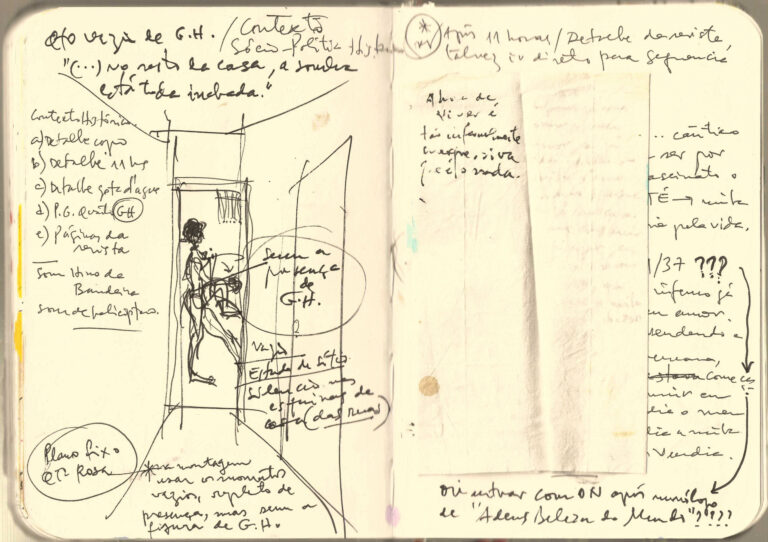 Qto vazio de G.H. / Contexto
Sócio-Político Hist
"(...) No resto da casa, a sombra
está toda inchada."
Contexto Histórico
a) Detalhe copo
b) Detalhe 11 hs
c) Detalhe gota d'agua
d) P.G. Quarto GH
e) Páginas da
revista
Som Hino da
Bandeira
Som de helicóptero
sem a
presença
de
G.H.
Vazio
Estado de Sítio
Silencio nas
esquinas da
casa (das ruas)
Plano fixo
QTO ROSA
para montagem
usar os momentos
vazios, repleto de
presença, mas sem a
figura de G.H.
Após 11 horas / Detalhe da revista,
talvez ir direto para sequencia
A hora de
viver é
tão infernalmente
inexpressiva
que é o nada.
... cântico
ser por
assassinato o
TÉ → minha
pela vida.
1/37 ???
inferno já
amor.
endendo a
come
minha
Ou entrar com ON após monólogo
de "Adeus Beleza do Mundo"????